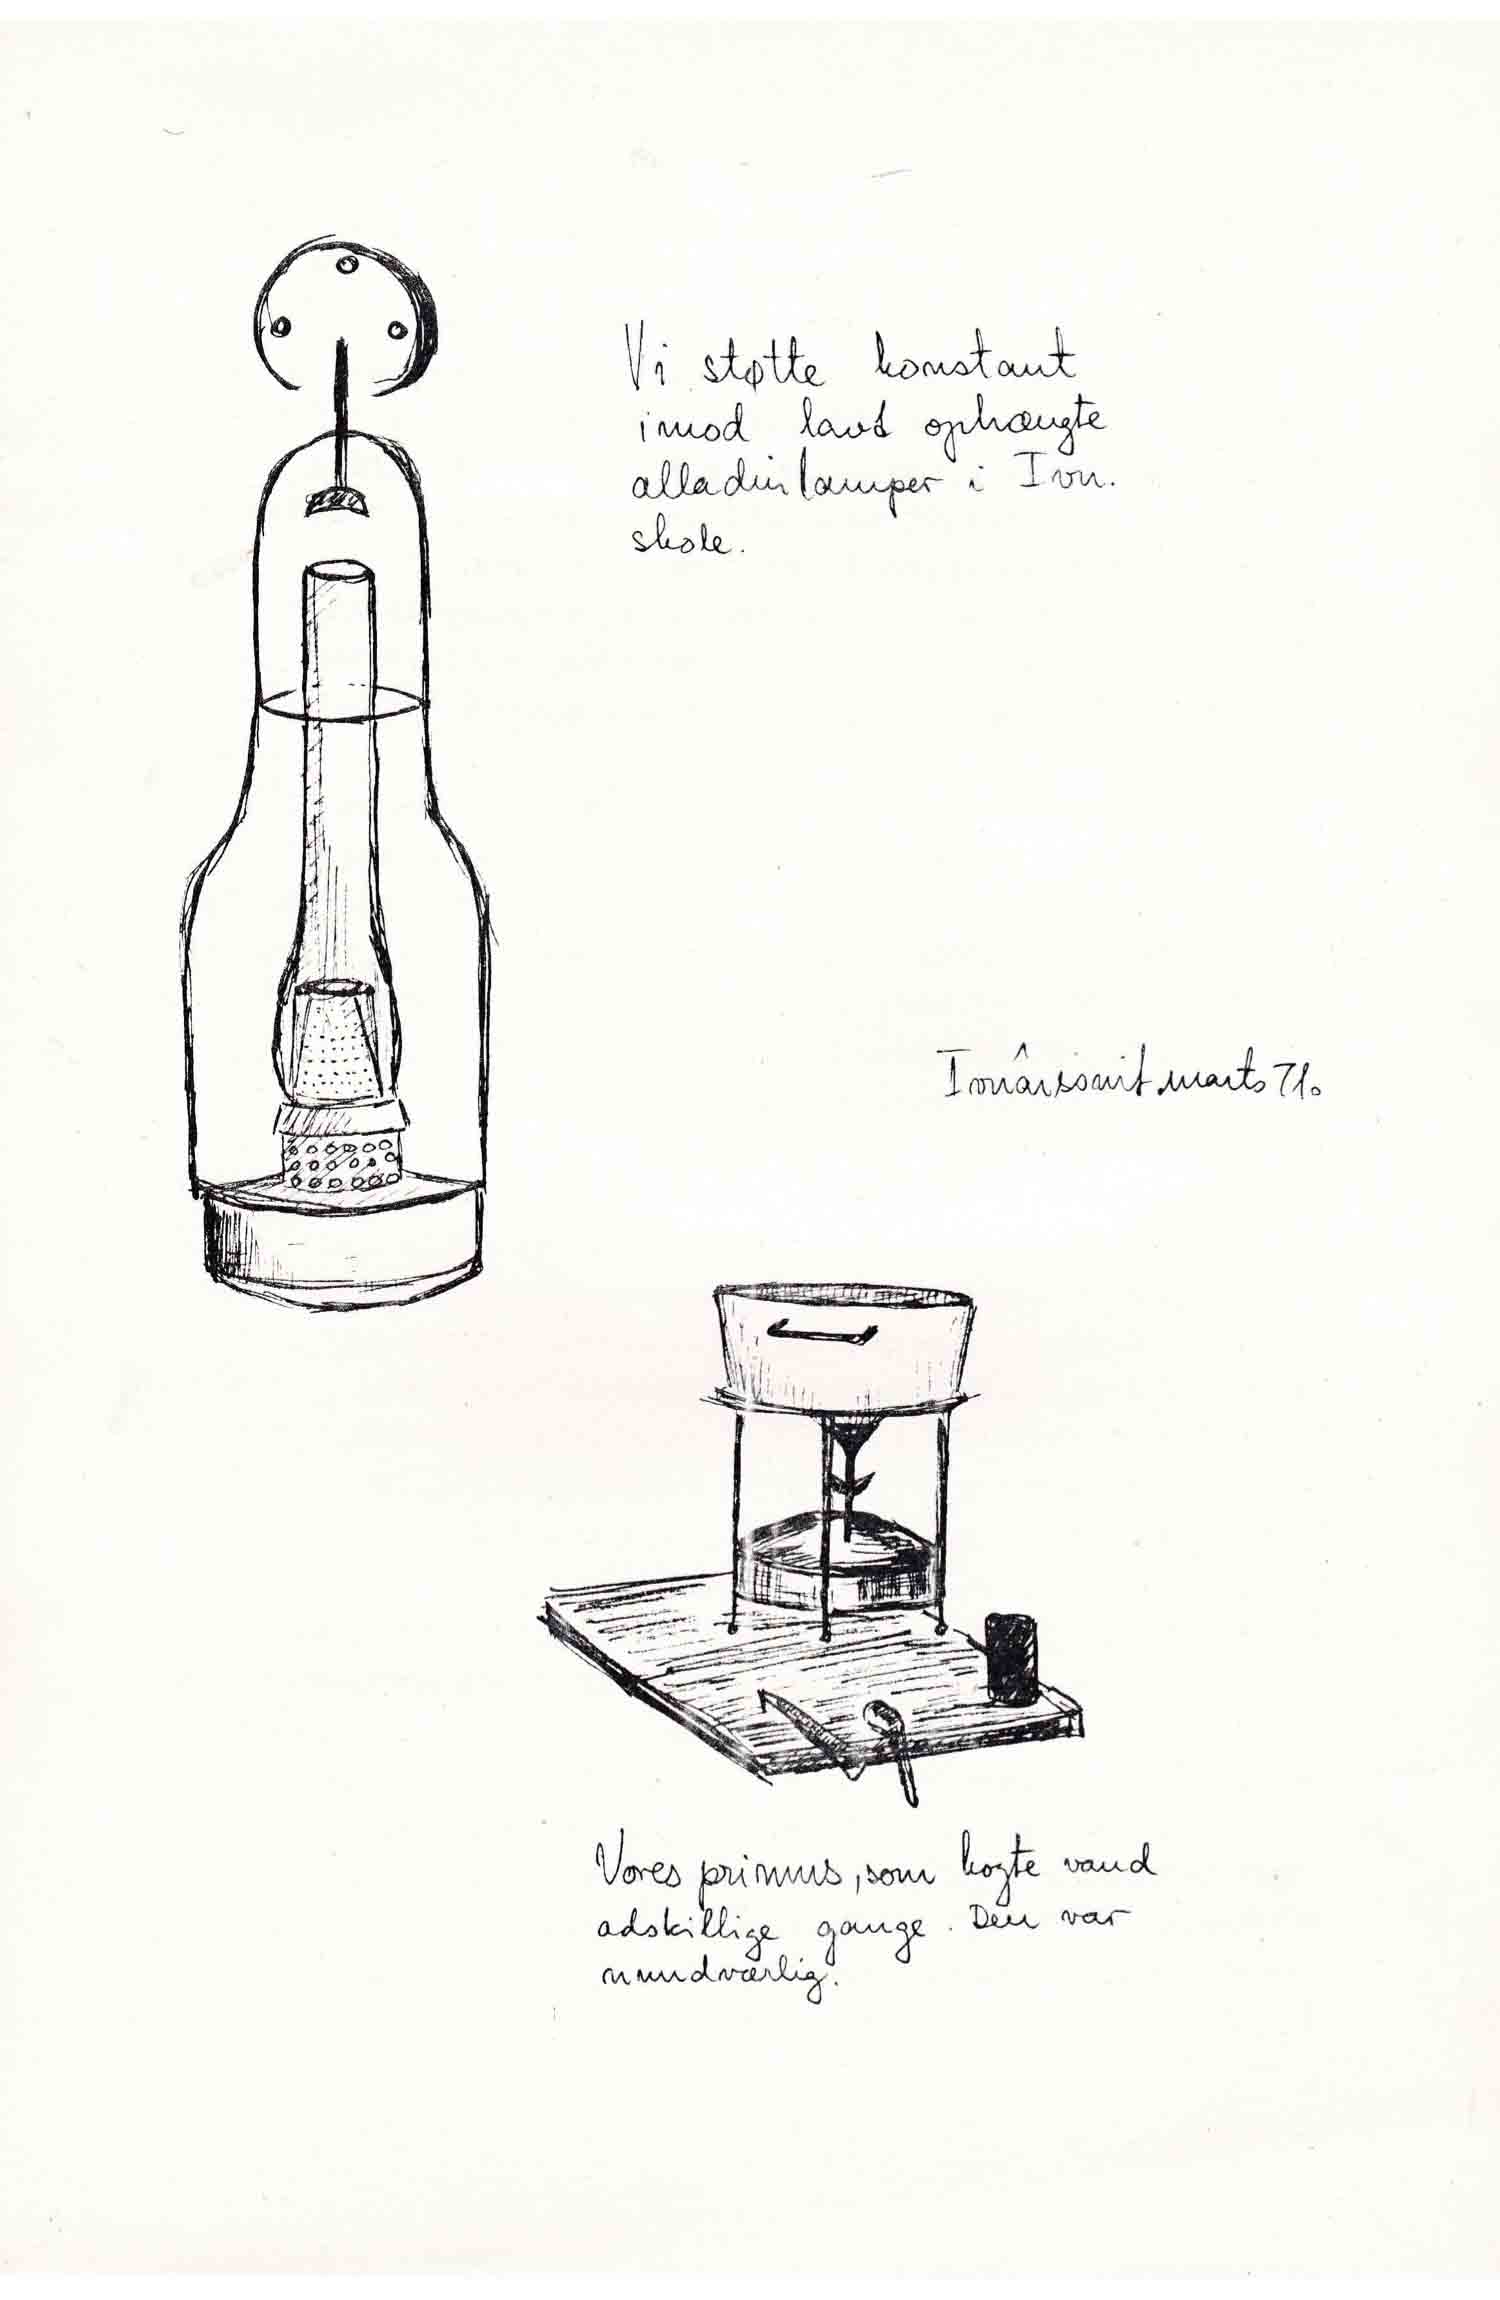 Vi støtte konstant
imod lavt ophængte
alladinlamper i Ivn.
skole.
Ivnârssuit marts 71.
Vores primus, som kogte vand
adskillige gange. Den var
uundværlig.